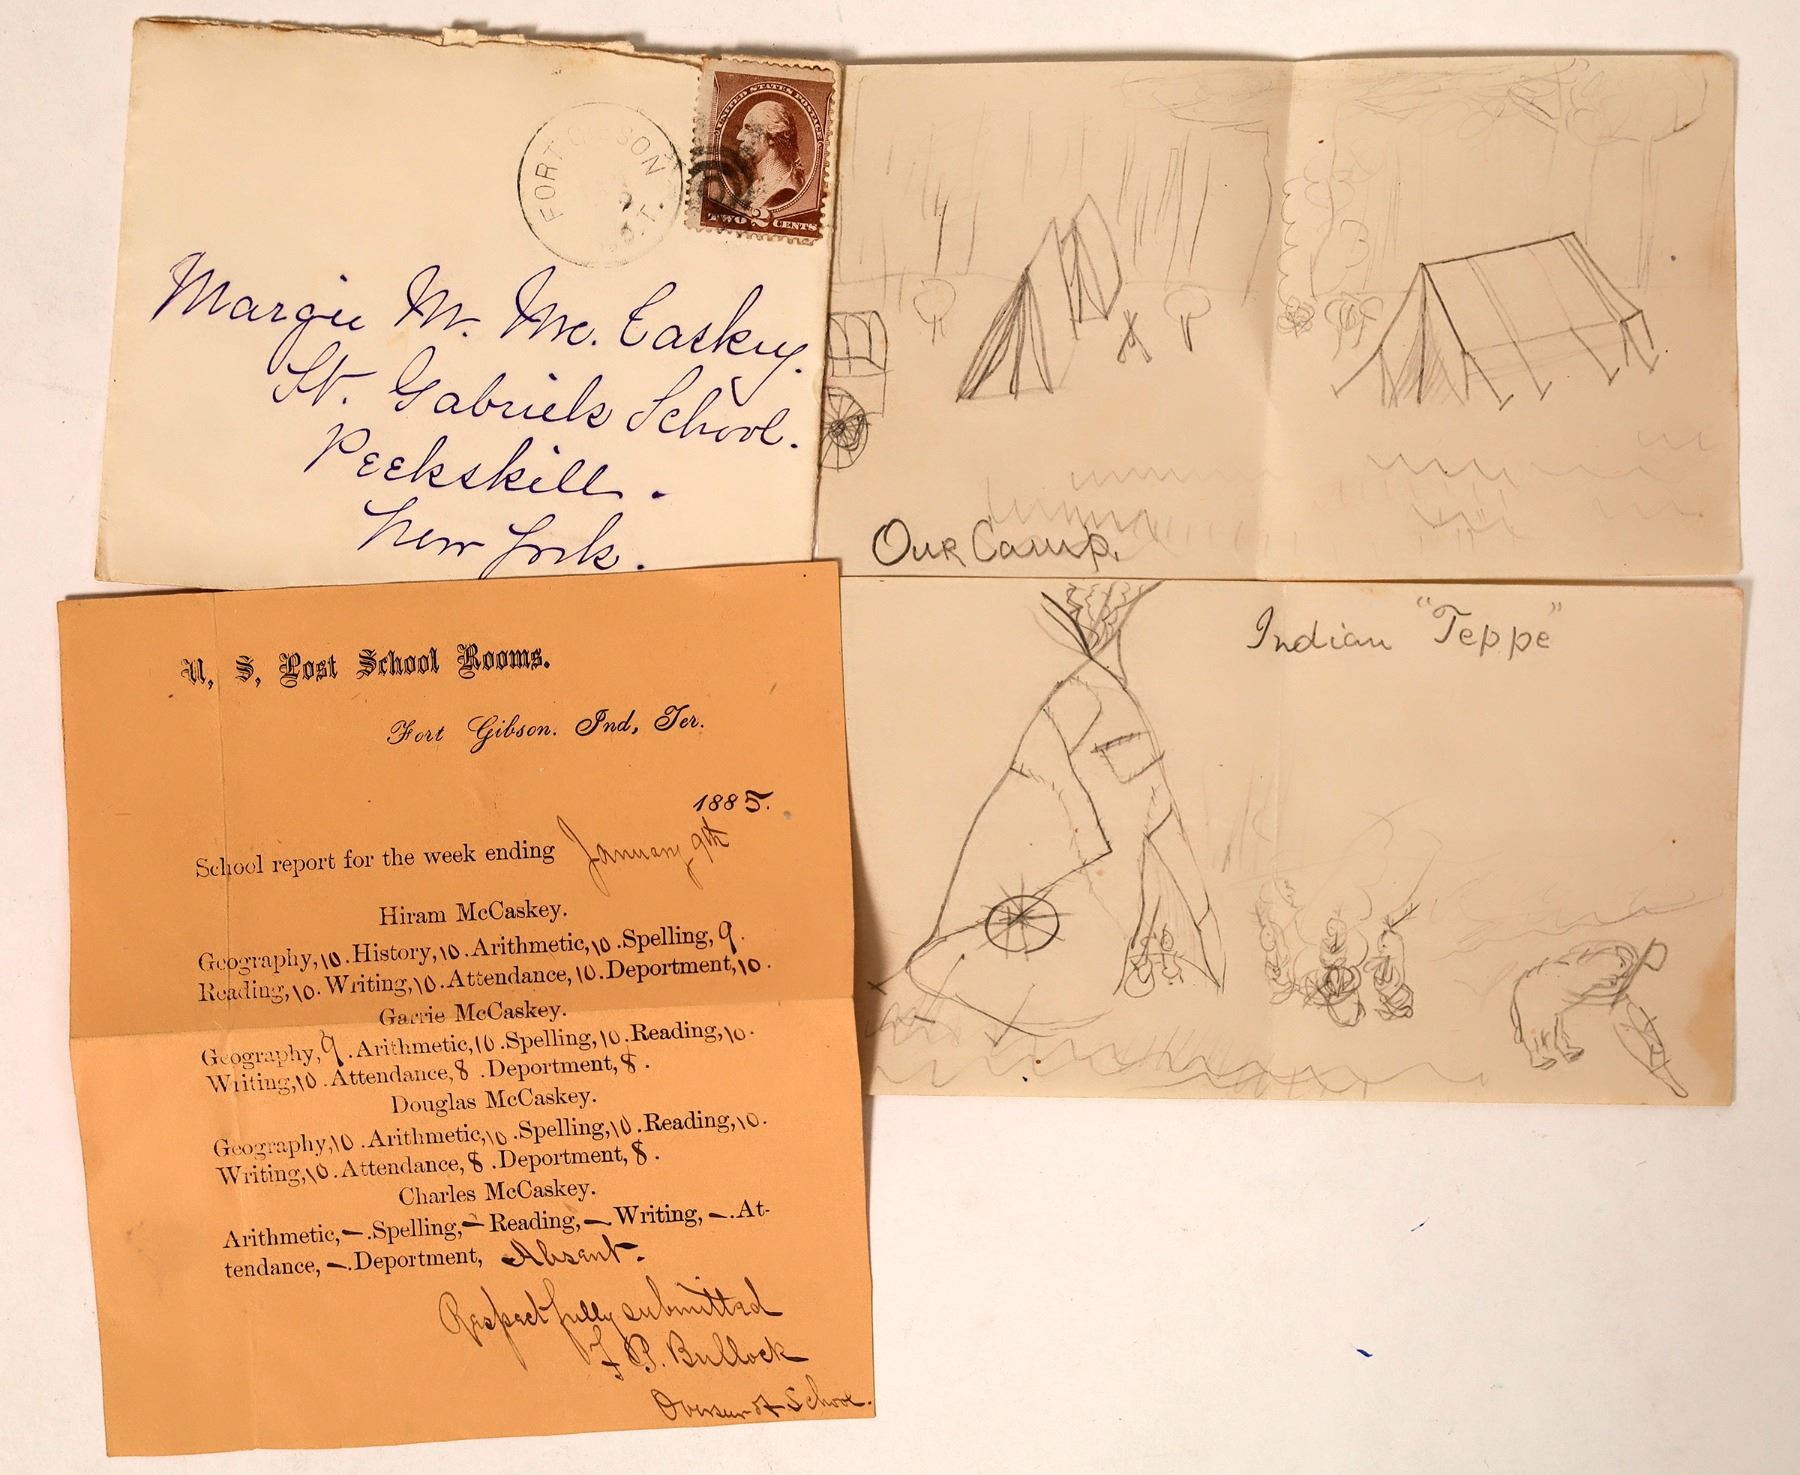 UNITED STATES POSTAGE
TWO 2 CENTS
FORT GIBSON
Margie M. McCaskey.
St. Gabriels School.
Peekskill.
New York.
Our Camp.
Indian "Teppe"
U, S, Post School Rooms.
Fort Gibson. Ind, Ter.
1885.
School report for the week ending January 9th
Hiram McCaskey.
Geography, 10. History, 10. Arithmetic, 10. Spelling, 9.
Reading, 10. Writing, 10. Attendance, 10. Deportment, 10.
Garrie McCaskey.
Geography, 9. Arithmetic, 10. Spelling, 10. Reading, 10.
Writing, 10. Attendance, 8. Deportment, 8.
Douglas McCaskey.
Geography, 10. Arithmetic, 10. Spelling, 10. Reading, 10.
Writing, 10. Attendance, 8. Deportment, 8.
Charles McCaskey.
Arithmetic, —. Spelling, — Reading, —. Writing, —. At-
tendance, —. Deportment, Absent.
Respectfully submitted
F P. Bullock
Overseer of School.